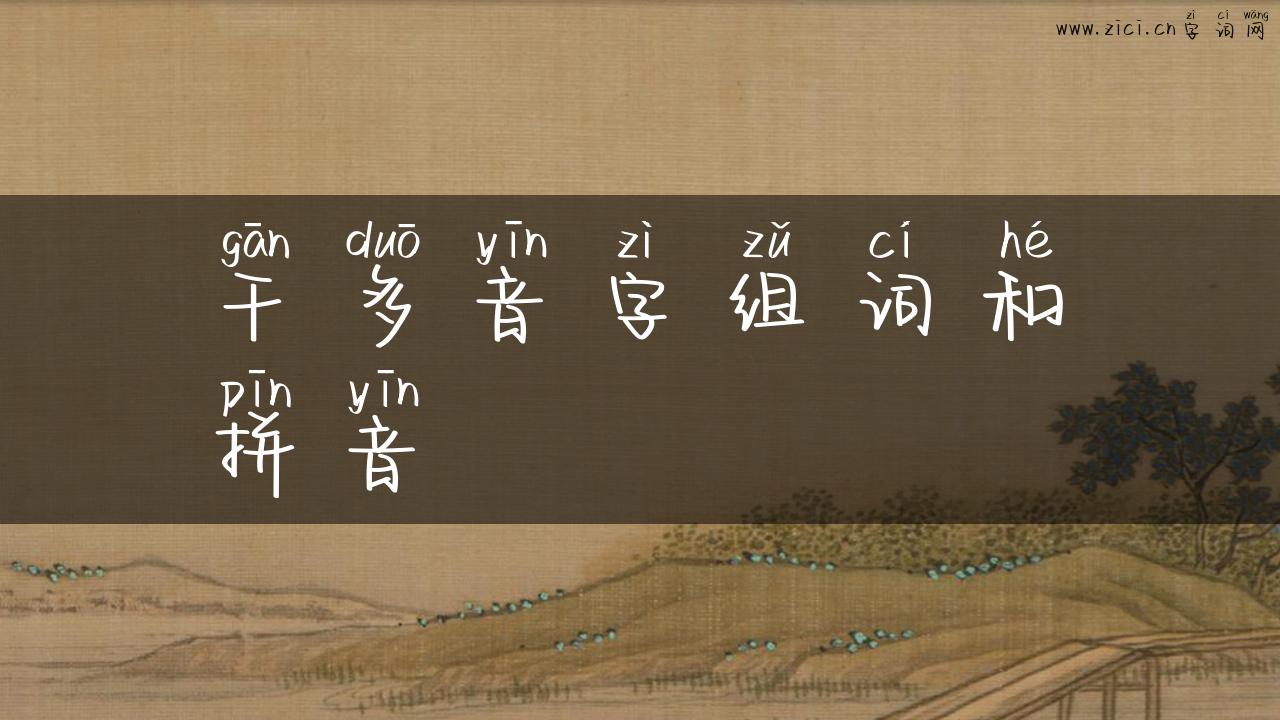 zì cí wǎng
www.zici.cn 字词网
gān duō yīn zì zǔ cí hé
干多音字组词和
pīn yīn
拼音